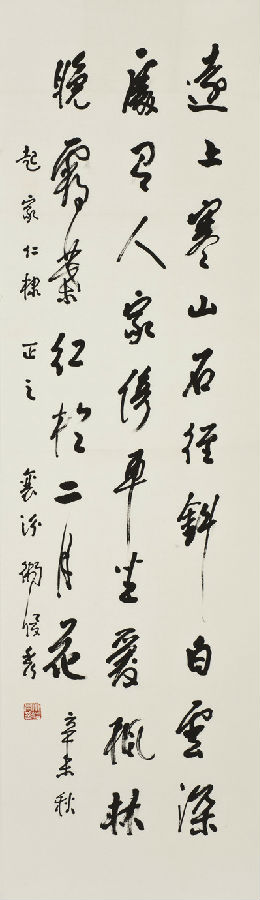 遠上寒山石徑斜白雲深
處有人家停車坐愛楓林
晚霜葉紅於二月花 辛未秋
起家仁棣正之 襄汾衛俊秀